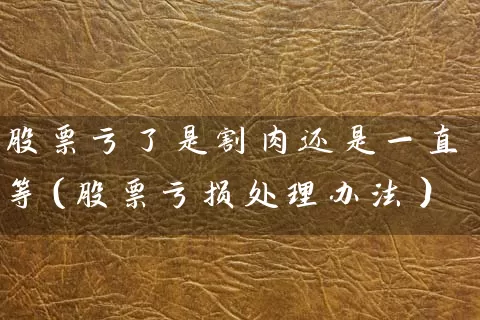 股票亏了是割肉还是一直
等（股票亏损处理办法）